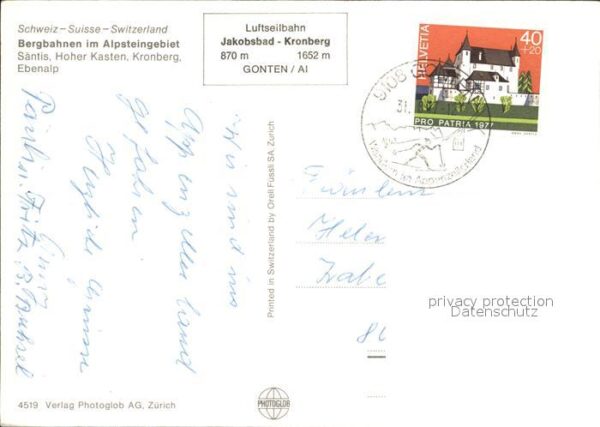 Schweiz – Suisse – Switzerland
Bergbahnen im Alpsteingebiet
Säntis, Hoher Kasten, Kronberg,
Ebenalp
Luftseilbahn
Jakobsbad - Kronberg
870 m 1652 m
GONTEN / AI
HELVETIA
40
+20
PRO PATRIA 1977
9108
31.
Wandern im Appenzellerland
Wir sind ins
Appenzellerland
gefahren.
Herzliche Grüsse
Fritz
Fräulein
Helen
Printed in Switzerland by Orell Füssli SA, Zürich
privacy protection
Datenschutz
PHOTOGLOB
4519 Verlag Photoglob AG, Zürich